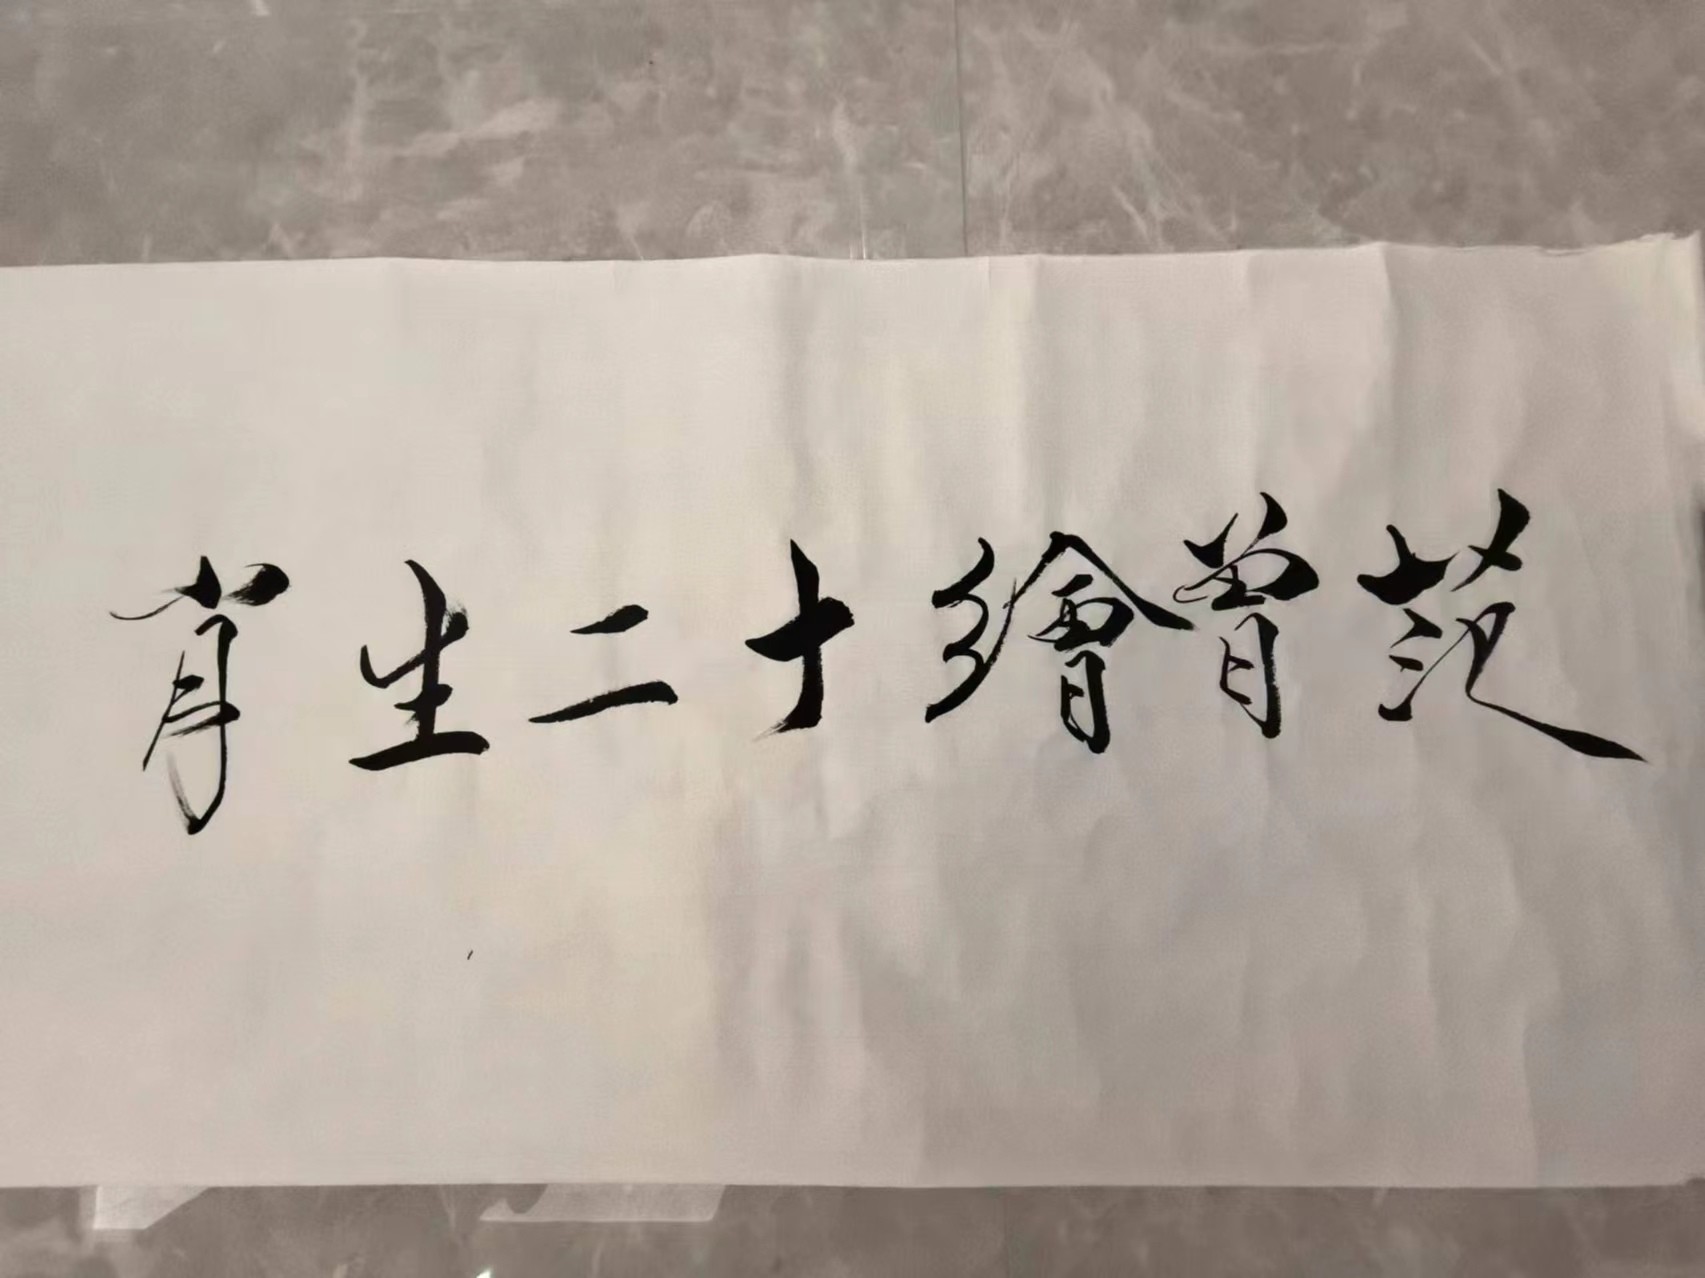 范曾繪十二生肖